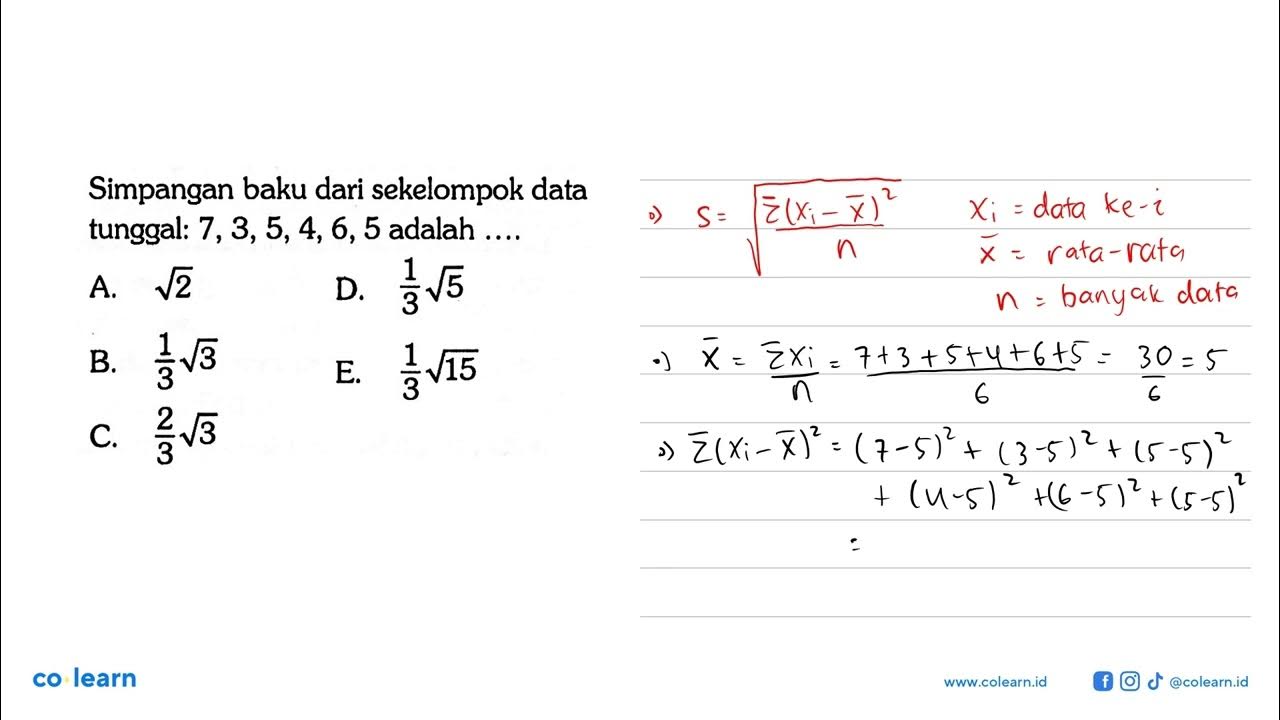 Simpangan baku dari sekelompok data
tunggal: 7, 3, 5, 4, 6, 5 adalah ....
A. √2
B. 1/3 √3
C. 2/3 √3
D. 1/3 √5
E. 1/3 √15
•) S = √(Σ(xi − x̄)² / n)
xi = data ke-i
x̄ = rata-rata
n = banyak data
•) x̄ = Σxi / n = 7+3+5+4+6+5 / 6 = 30/6 = 5
•) Σ(xi − x̄)² = (7−5)² + (3−5)² + (5−5)²
+ (4−5)² + (6−5)² + (5−5)²
=
co·learn
www.colearn.id
@colearn.id